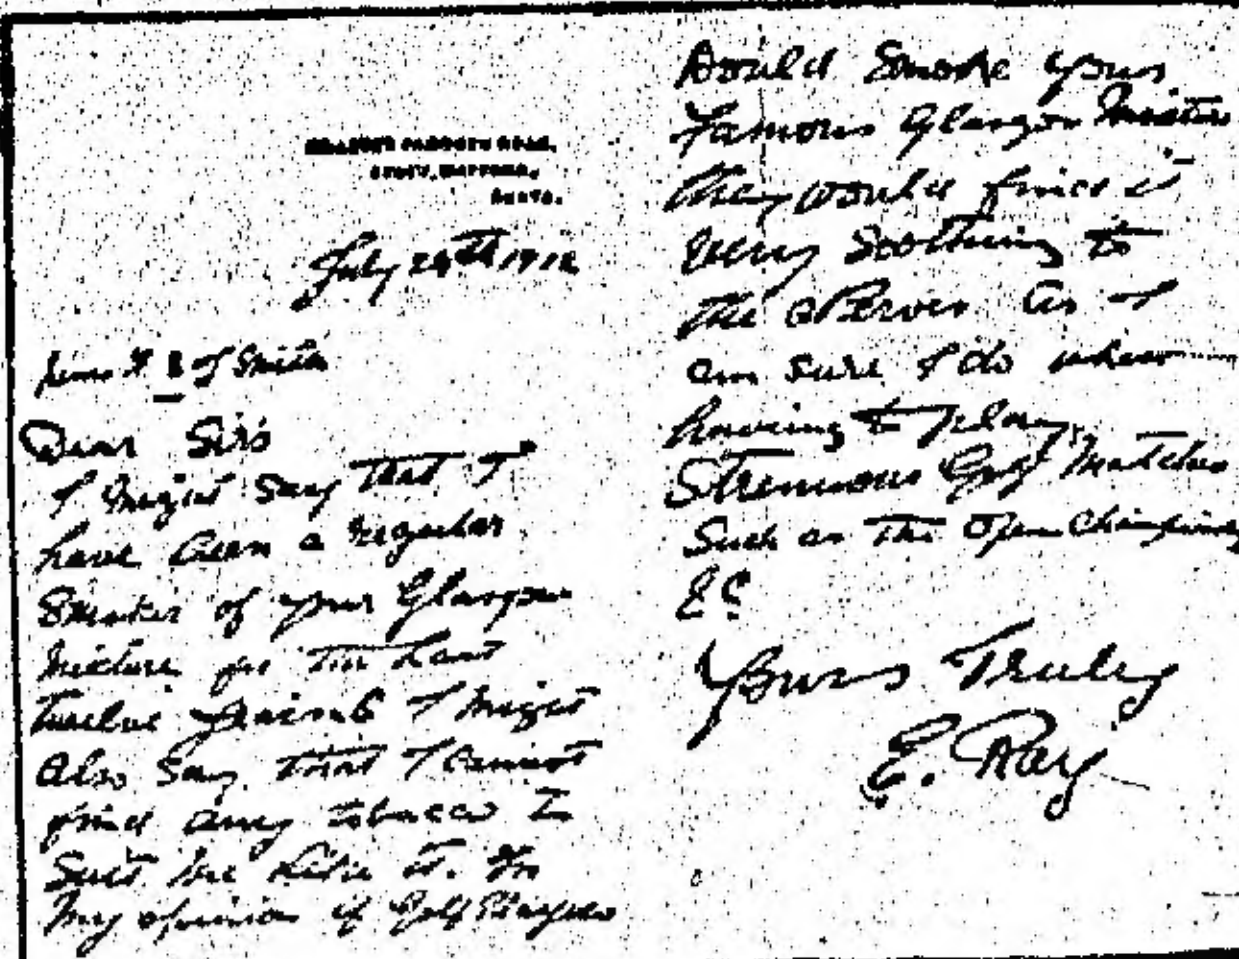 July 24th 1912
F & J Smith
Dear Sirs
I might say that I
have been a regular
Smoker of your Glasgow
Mixture for the Last
Twelve years & I might
also say that I cannot
find any tobacco to
Suit me like it. In
my opinion if Golf Players
Would Smoke your
Famous Glasgow Mixture
they would find it
Very Soothing to
the Nerves as I
am sure I do when
having to play
Strenuous Golf Matches
Such as the Open Championship
Yours Truly
E. Ray